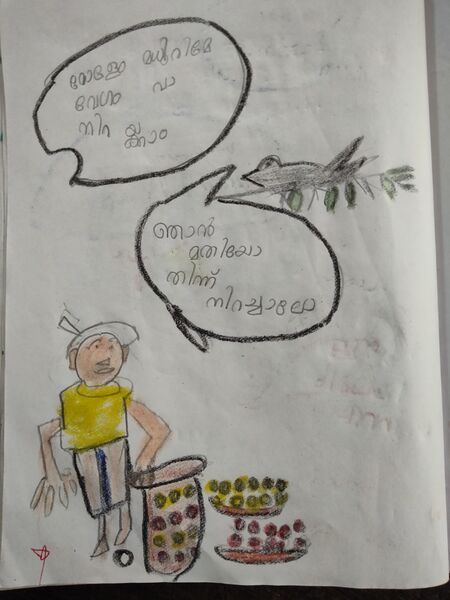 മധുരിമേ
വേഗം വാ
നിറ യ്ക്കാം
ഞാൻ
മതിയോ
തിന്ന്
നിറച്ചാലോ